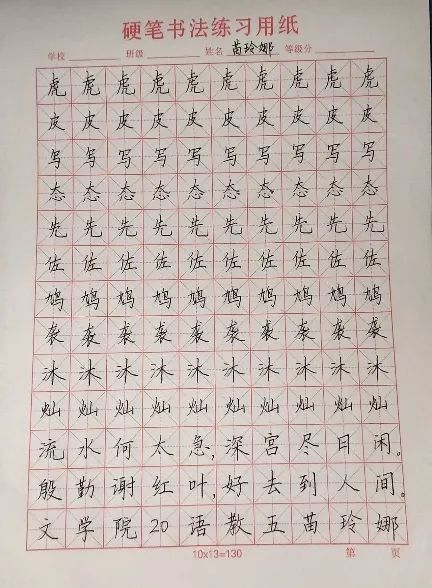 硬笔书法练习用纸
学校 班级 姓名 苗玲娜 等级分
虎虎虎虎虎虎虎虎虎虎
皮皮皮皮皮皮皮皮皮皮
写写写写写写写写写写
态态态态态态态态态态
先先先先先先先先先先
佐佐佐佐佐佐佐佐佐佐
鸠鸠鸠鸠鸠鸠鸠鸠鸠鸠
袭袭袭袭袭袭袭袭袭袭
沐沐沐沐沐沐沐沐沐沐
灿灿灿灿灿灿灿灿灿灿
流水何太急,深宫尽日闲。
殷勤谢红叶,好去到人间。
文学院20语教五苗玲娜
10x13=130 第 页